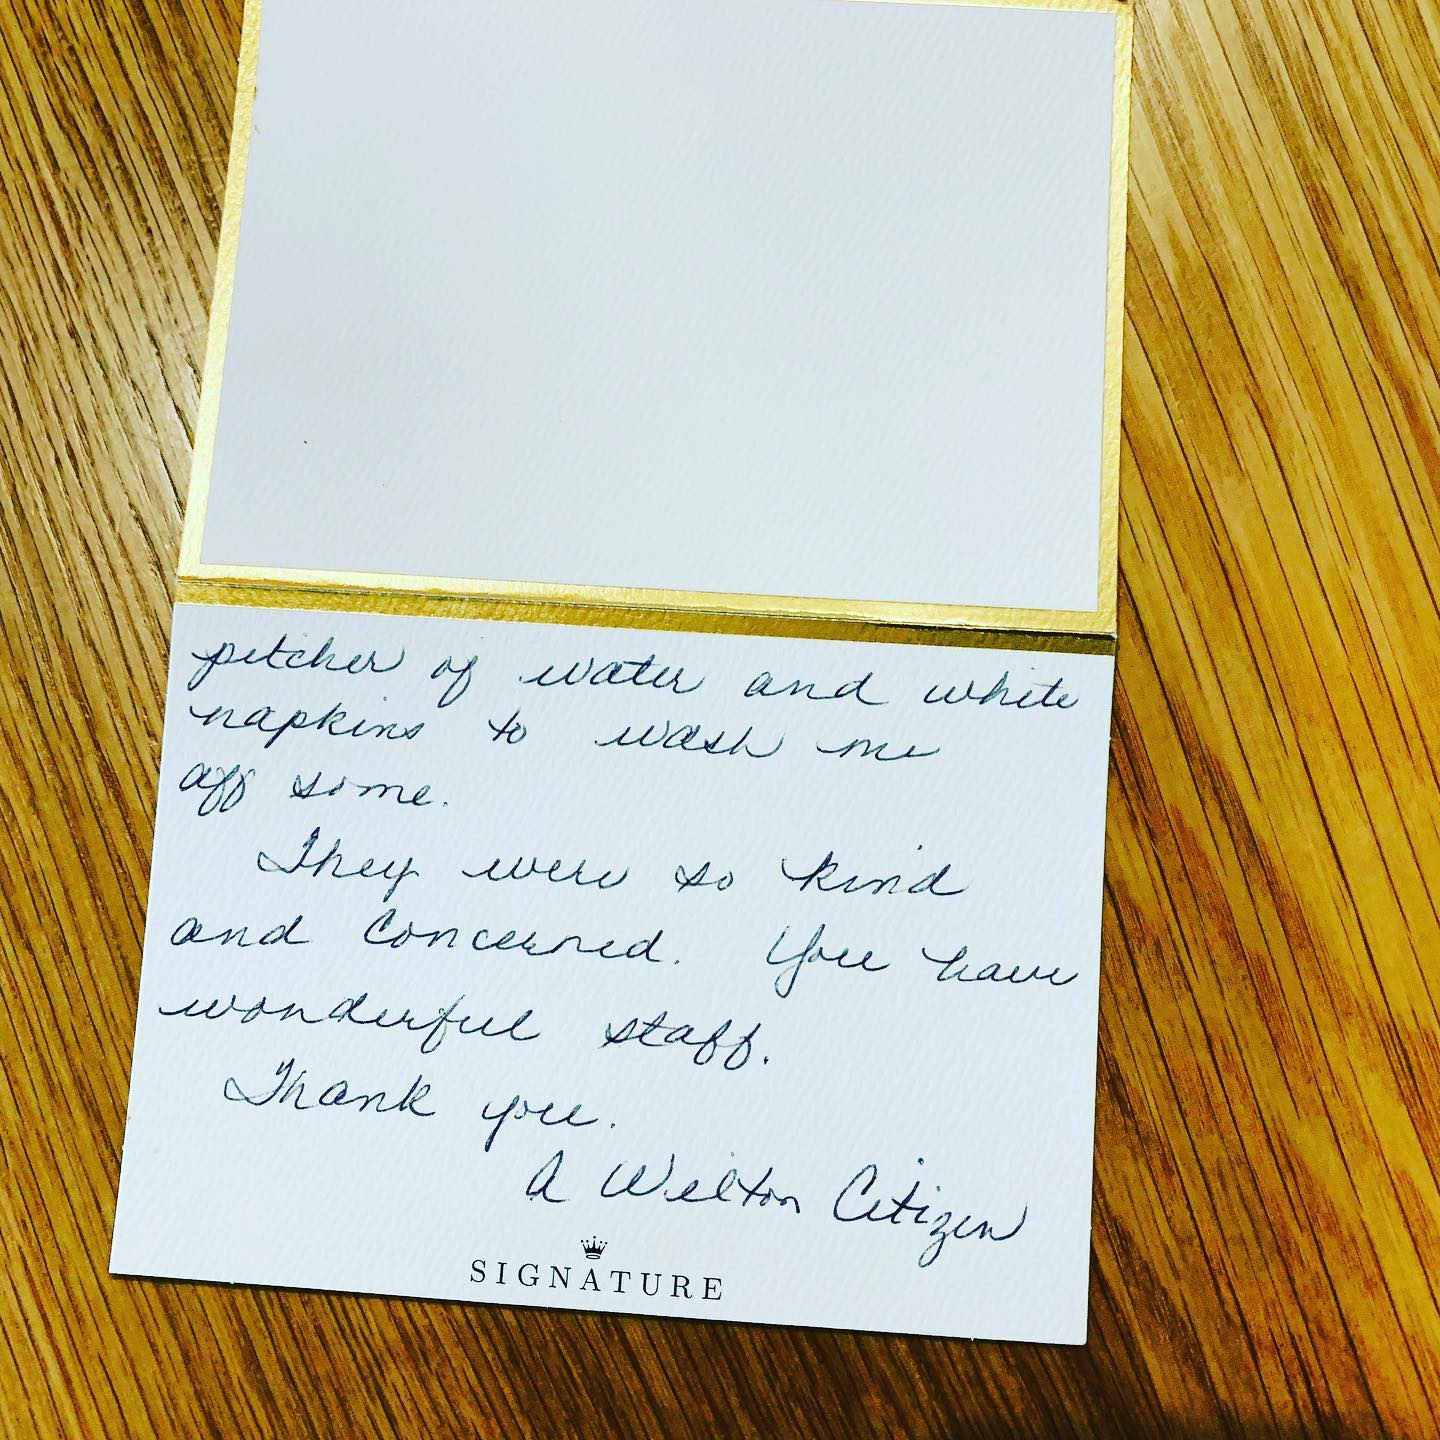 pitcher of water and white
napkins to wash me
off some.
They were so kind
and concerned. You have
wonderful staff.
Thank you.
A Wilton Citizen
SIGNATURE